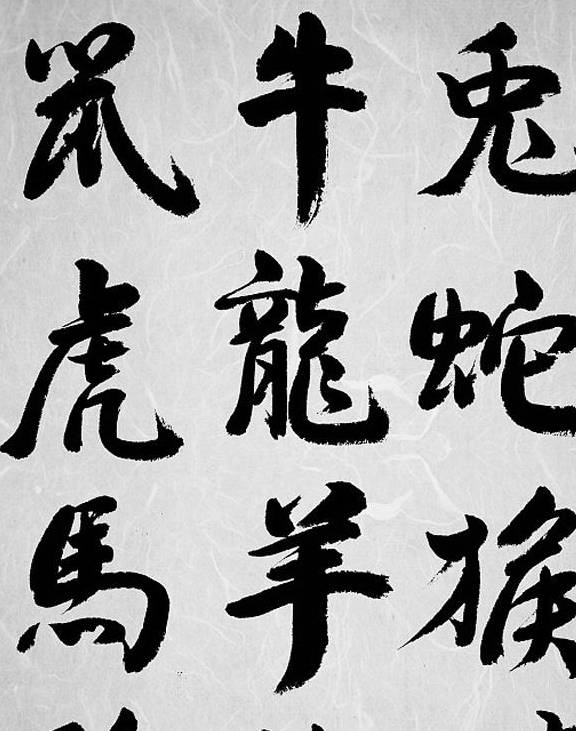 鼠牛兔
虎龍蛇
馬羊猴